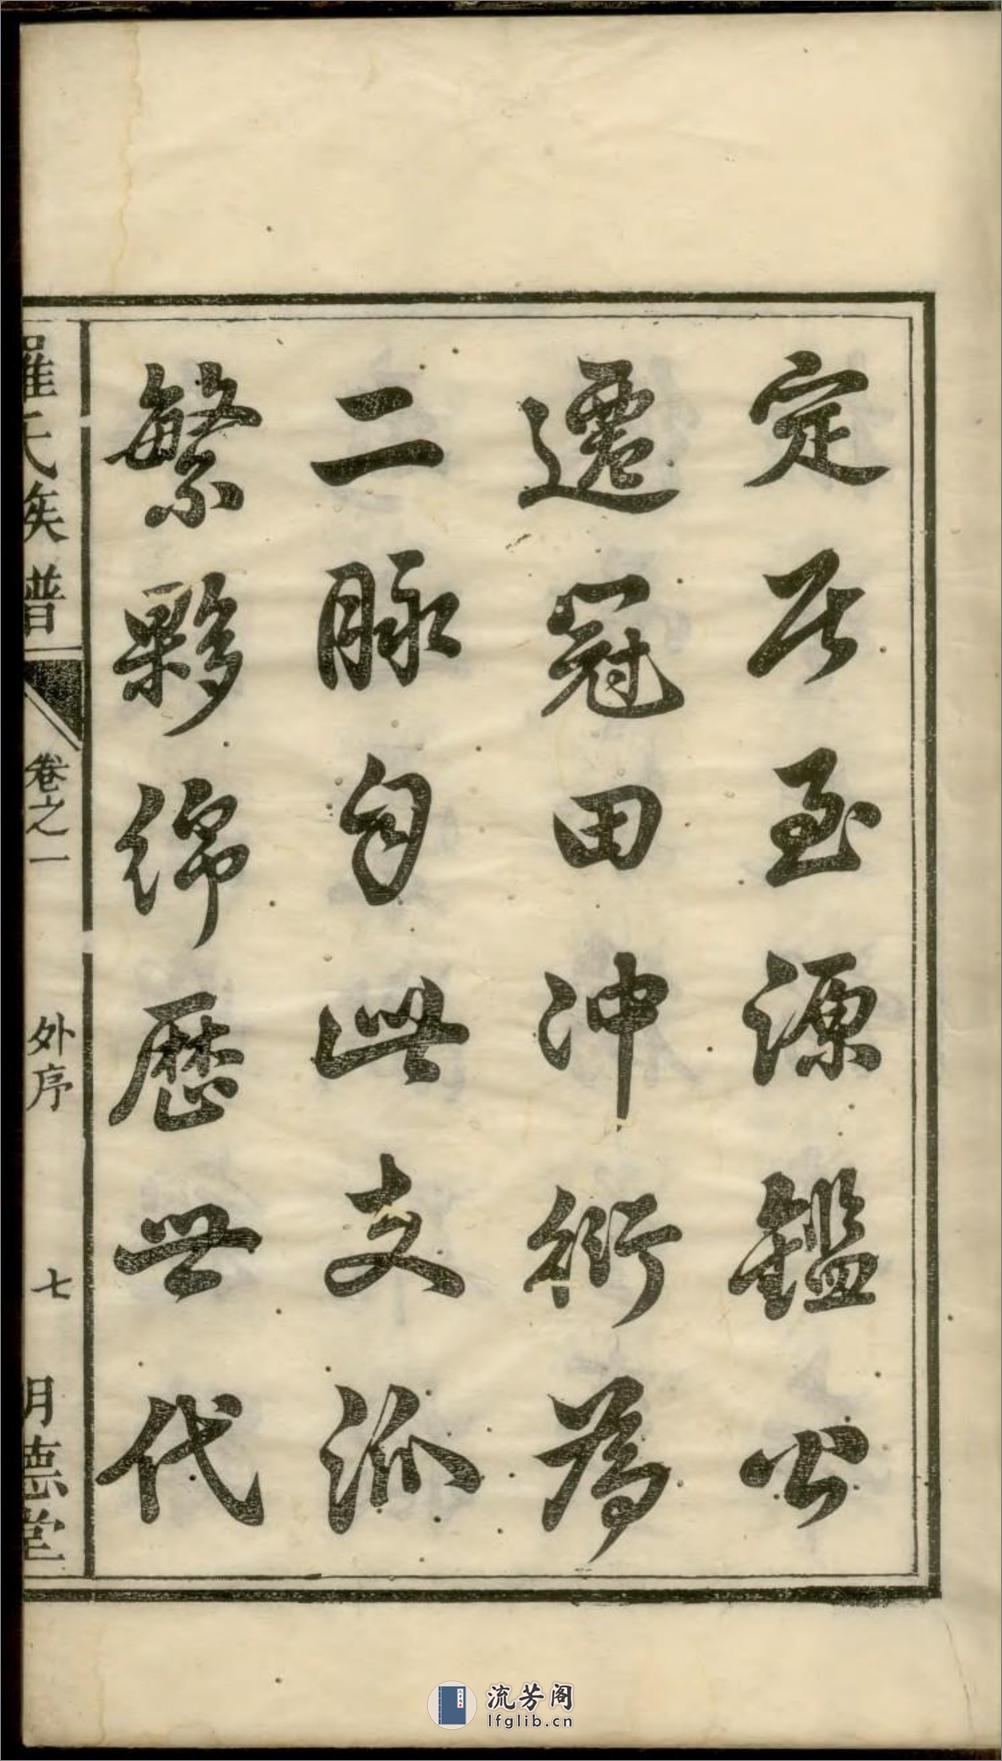 定居至源鑑公
遷冠田冲衍為
二脉自此支派
繁夥綿歷世代
羅氏族譜
卷之一
外序
七
明德堂
流芳阁
lfglib.cn